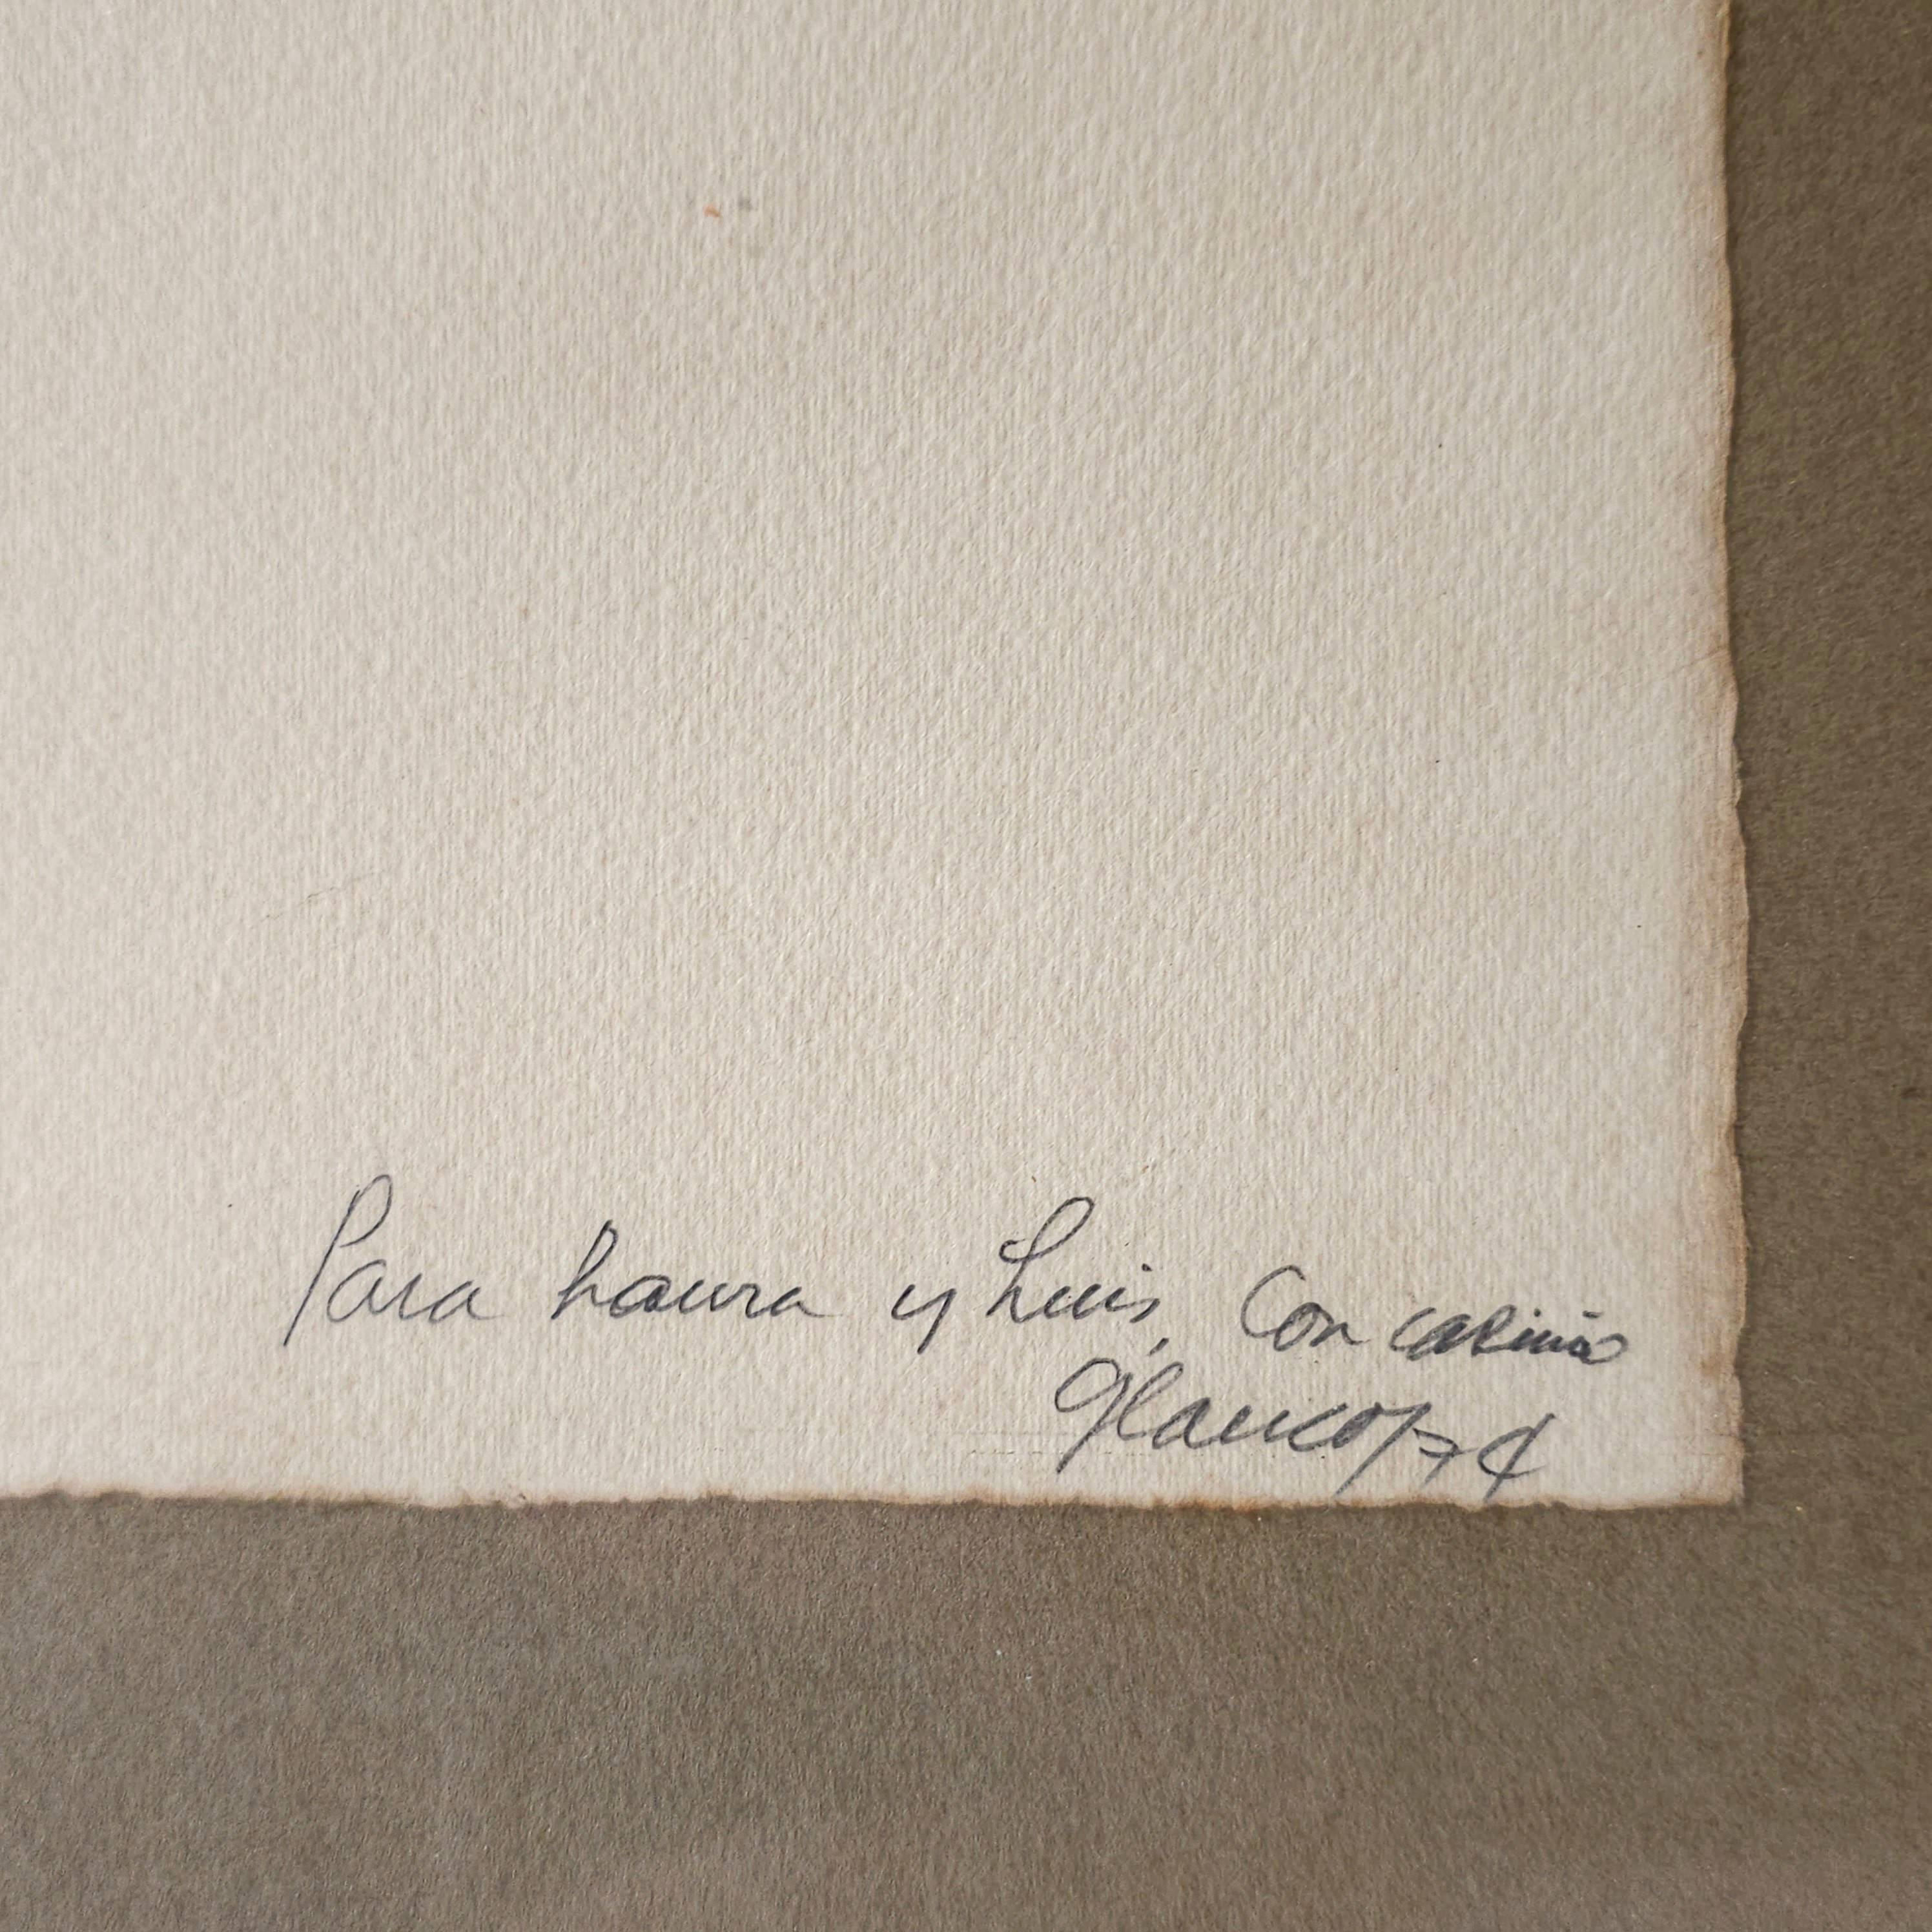 Para Laura y Luis, Con cariño
Glauco